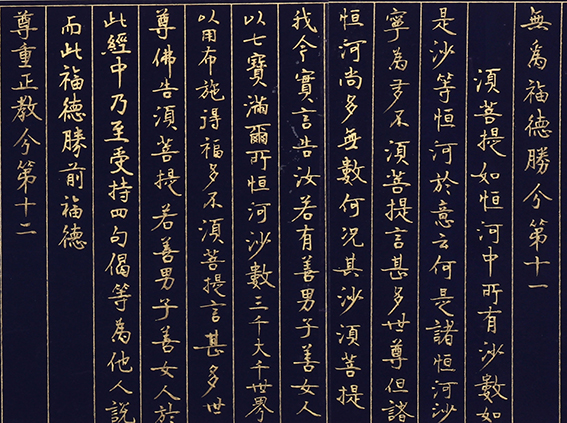 無為福德勝分第十一
須菩提如恒河中所有沙數如
是沙等恒河於意云何是諸恒河沙
寧為多不須菩提言甚多世尊但諸
恒河尚多無數何況其沙須菩提
我今實言告汝若有善男子善女人
以七寶滿爾所恒河沙數三千大千世界
以用布施得福多不須菩提言甚多世
尊佛告須菩提若善男子善女人於
此經中乃至受持四句偈等為他人說
而此福德勝前福德
尊重正教分第十二